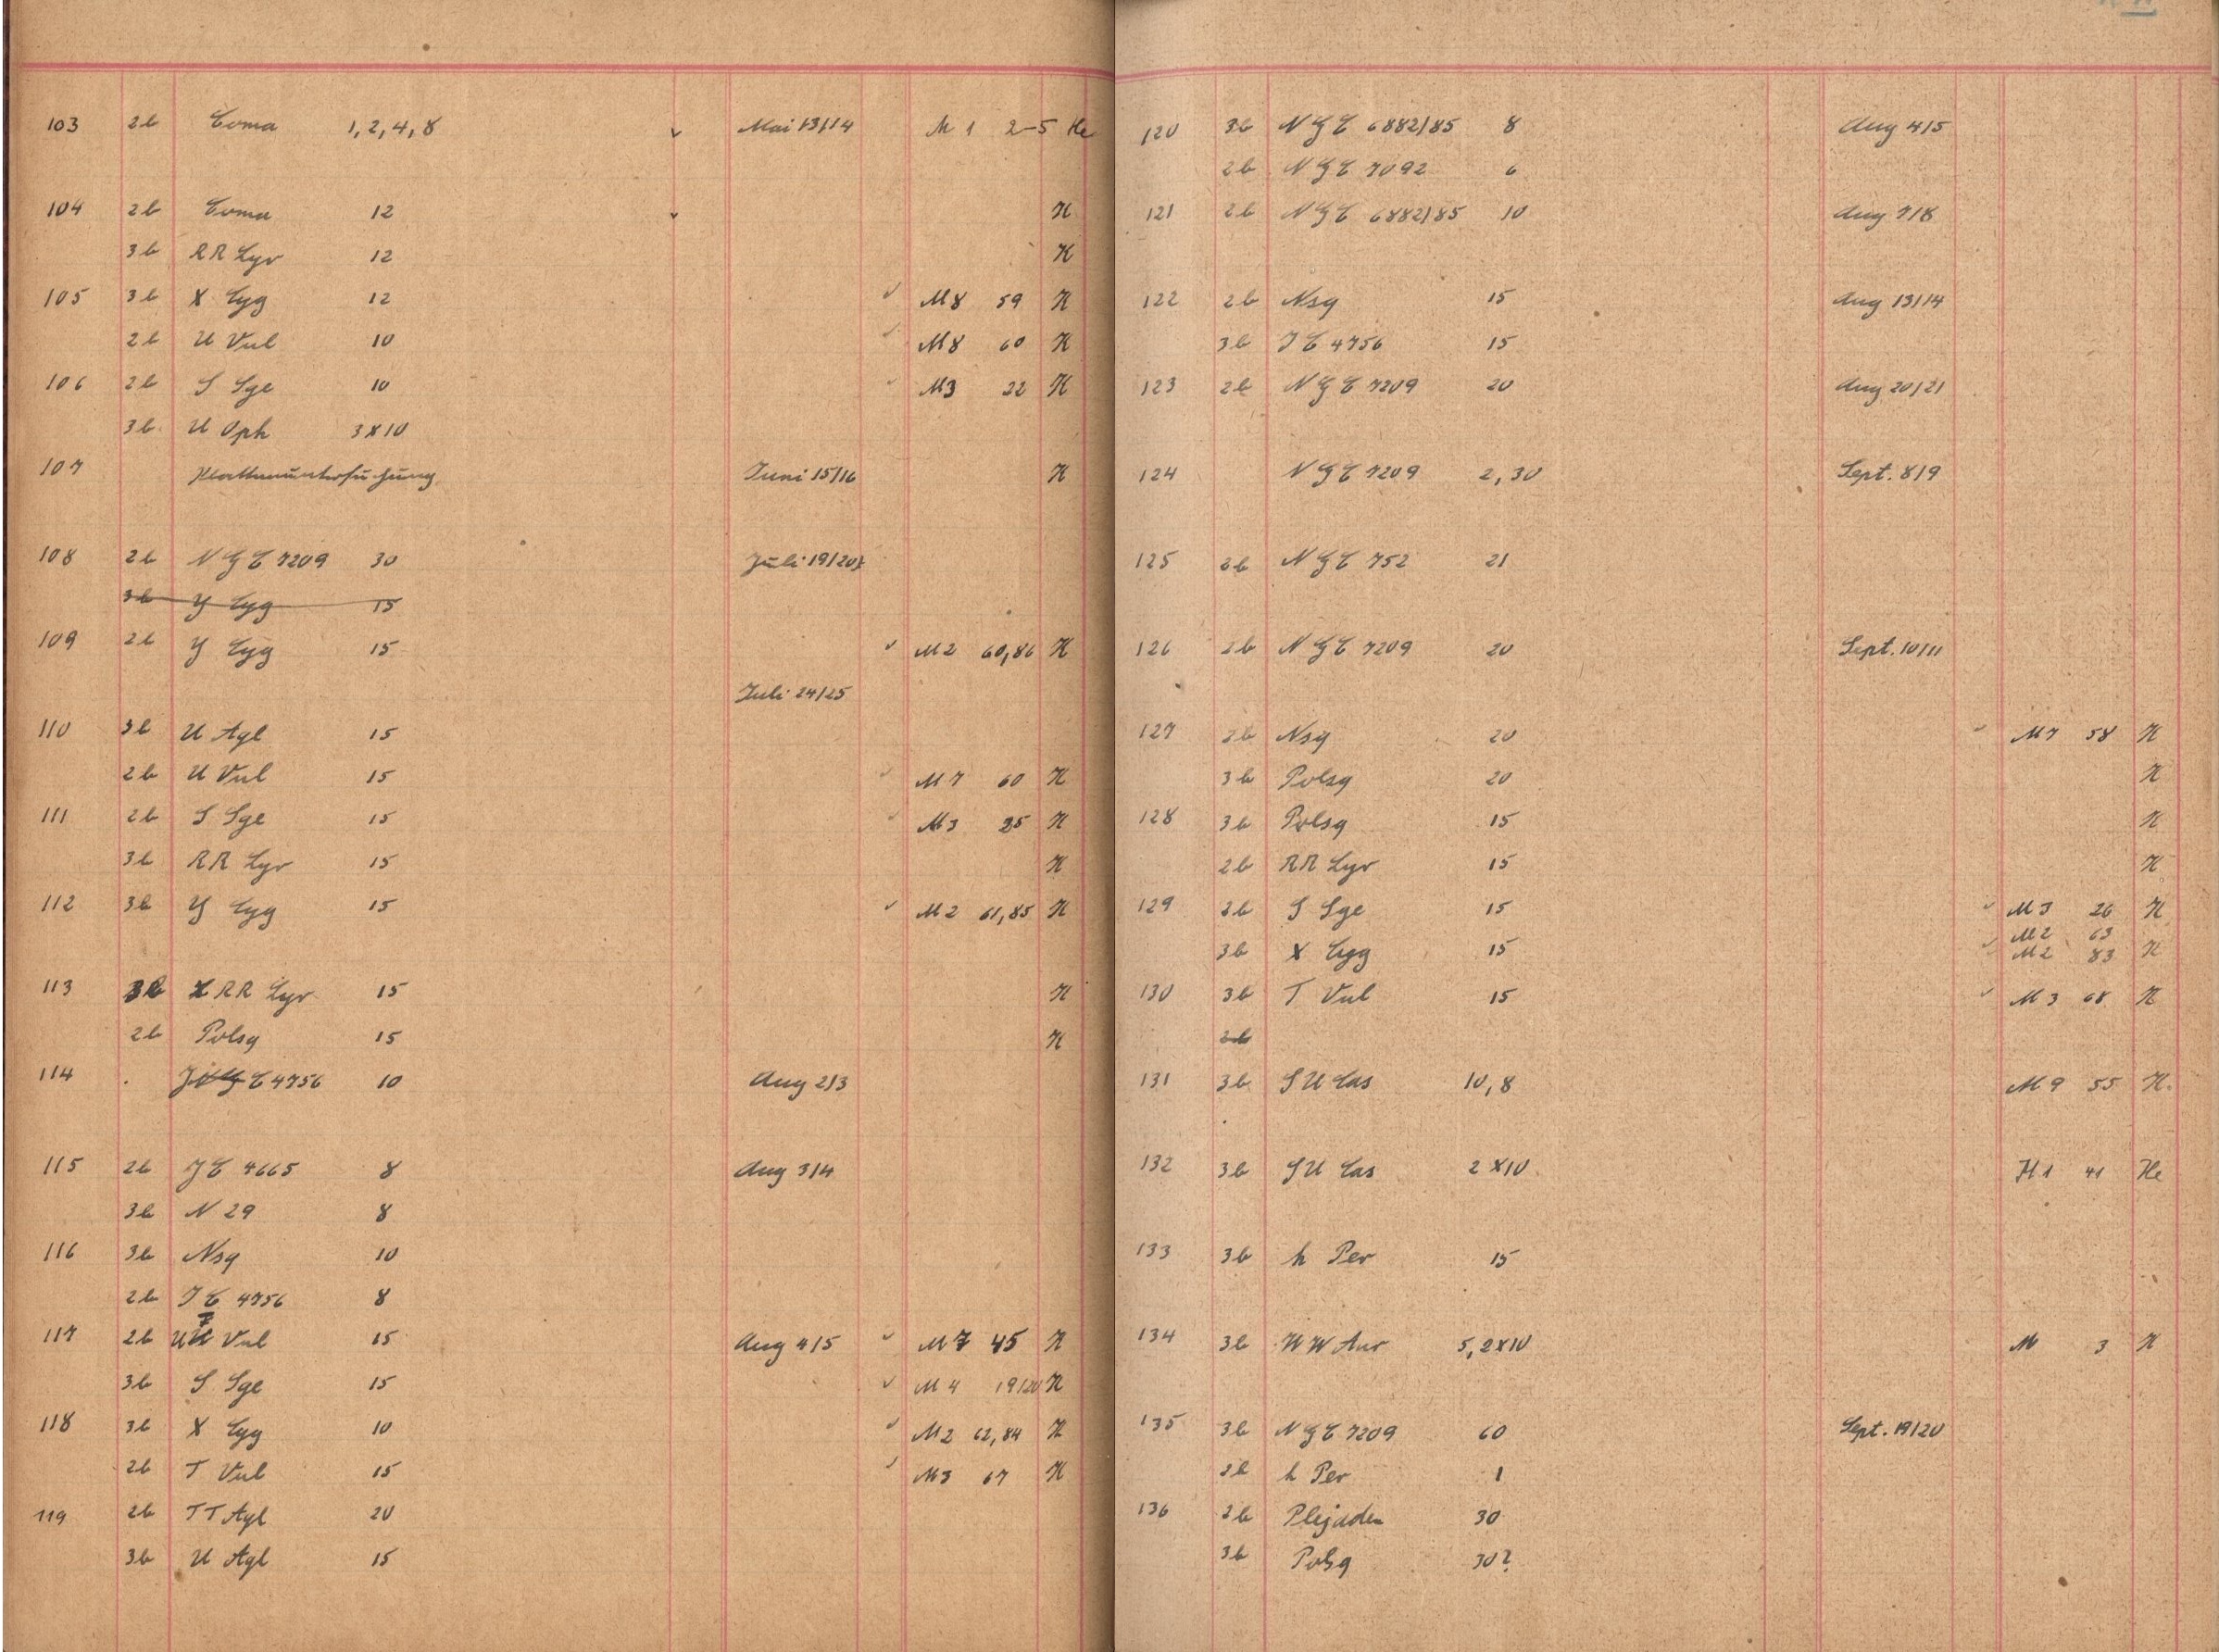 103 2b Coma 1, 2, 4, 8 ✓ Mai 13/14 M 1 2–5 He
104 2b Coma 12 ✓ K
3b RR Lyr 12 K
105 3b X Cyg 12 ✓ M8 59 K
2b U Vul 10 ✓ M8 60 K
106 2b S Sge 10 ✓ M3 22 K
3b U Oph 3x10
107 Plattenuntersuchung Juni 15/16 K
108 2b NGC 7209 30 Juli 19/20
3b Y Cyg 15
109 2b Y Cyg 15 ✓ M2 60,86 K
Juli 24/25
110 3b U Aql 15
2b U Vul 15 ✓ M7 60 K
111 2b S Sge 15 ✓ M3 25 K
3b RR Lyr 15 K
112 3b Y Cyg 15 ✓ M2 61,85 K
113 3b RR Lyr 15 K
2b Polsq 15 K
114 J C 4756 10 Aug 2/3
115 2b JC 4665 8 Aug 3/4
3b N 29 8
116 3b Nsq 10
2b JC 4756 8
117 2b U Vul 15 Aug 4/5 ✓ M7 45 K
3b S Sge 15 ✓ M4 19/20 K
118 3b X Cyg 10 ✓ M2 62,84 K
2b T Vul 15 ✓ M3 67 K
119 2b TT Aql 20
3b U Aql 15
120 3b NGC 6882/85 8 Aug 4/5
2b NGC 7092 6
121 2b NGC 6882/85 10 Aug 7/8
122 2b Nsq 15 Aug 13/14
3b JC 4756 15
123 2b NGC 7209 20 Aug 20/21
124 NGC 7209 2, 30 Sept. 8/9
125 2b NGC 752 21
126 2b NGC 7209 20 Sept. 10/11
127 2b Nsq 20 ✓ M7 58 K
3b Polsq 20 K
128 3b Polsq 15 K
2b RR Lyr 15 K
129 2b S Sge 15 ✓ M3 26 K
M2 63
3b X Cyg 15 ✓ M2 83 K
130 3b T Vul 15 ✓ M3 68 K
2b
131 3b SU Cas 10, 8 M9 55 K
132 3b SU Cas 2x10 H1 41 He
133 3b h Per 15
134 3b WW Aur 5, 2x10 M 3 K
135 3b NGC 7209 60 Sept. 19/20
2b h Per 1
136 2b Plejaden 30
3b Polsq 30?